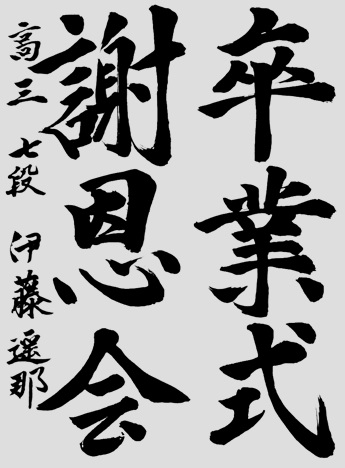 卒業式
謝恩会
高三 七段 伊藤遥那